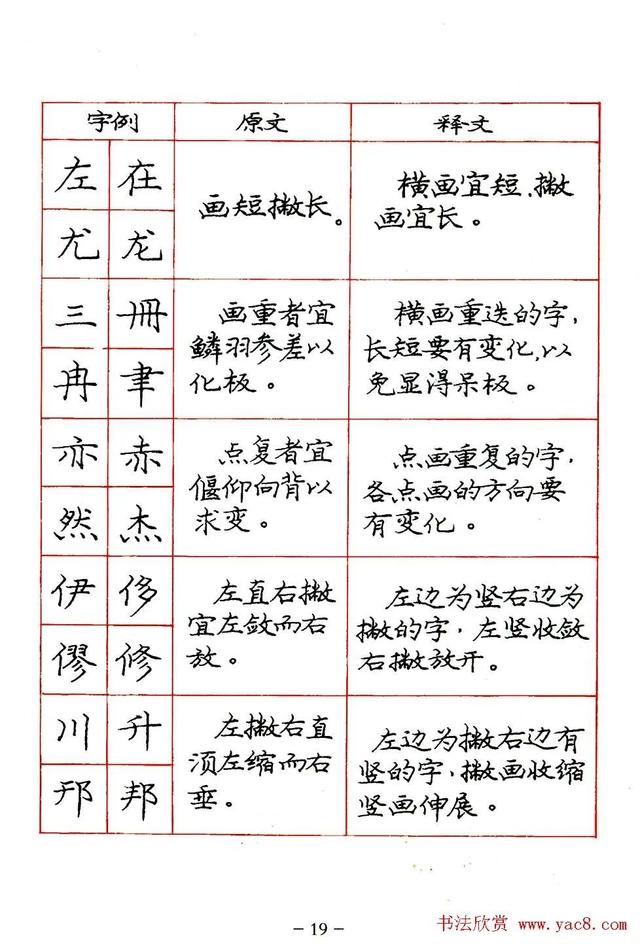 字例 原文 释文
左 在
尤 龙
画短撇长。
横画宜短,撇
画宜长。
三 冊
冉 聿
画重者宜
鳞羽参差以
化板。
横画重迭的字,
长短要有变化,以
免显得呆板。
亦 赤
然 杰
点复者宜
偃仰向背以
求变。
点画重复的字,
各点画的方向要
有变化。
伊 侈
僇 修
左直右撇
宜左敛而右
放。
左边为竖右边为
撇的字,左竖收敛
右撇放开。
川 升
邦
左撇右直
须左缩而右
垂。
左边为撇右边有
竖的字,撇画收缩
竖画伸展。
- 19 -
书法欣赏 www.yac8.com